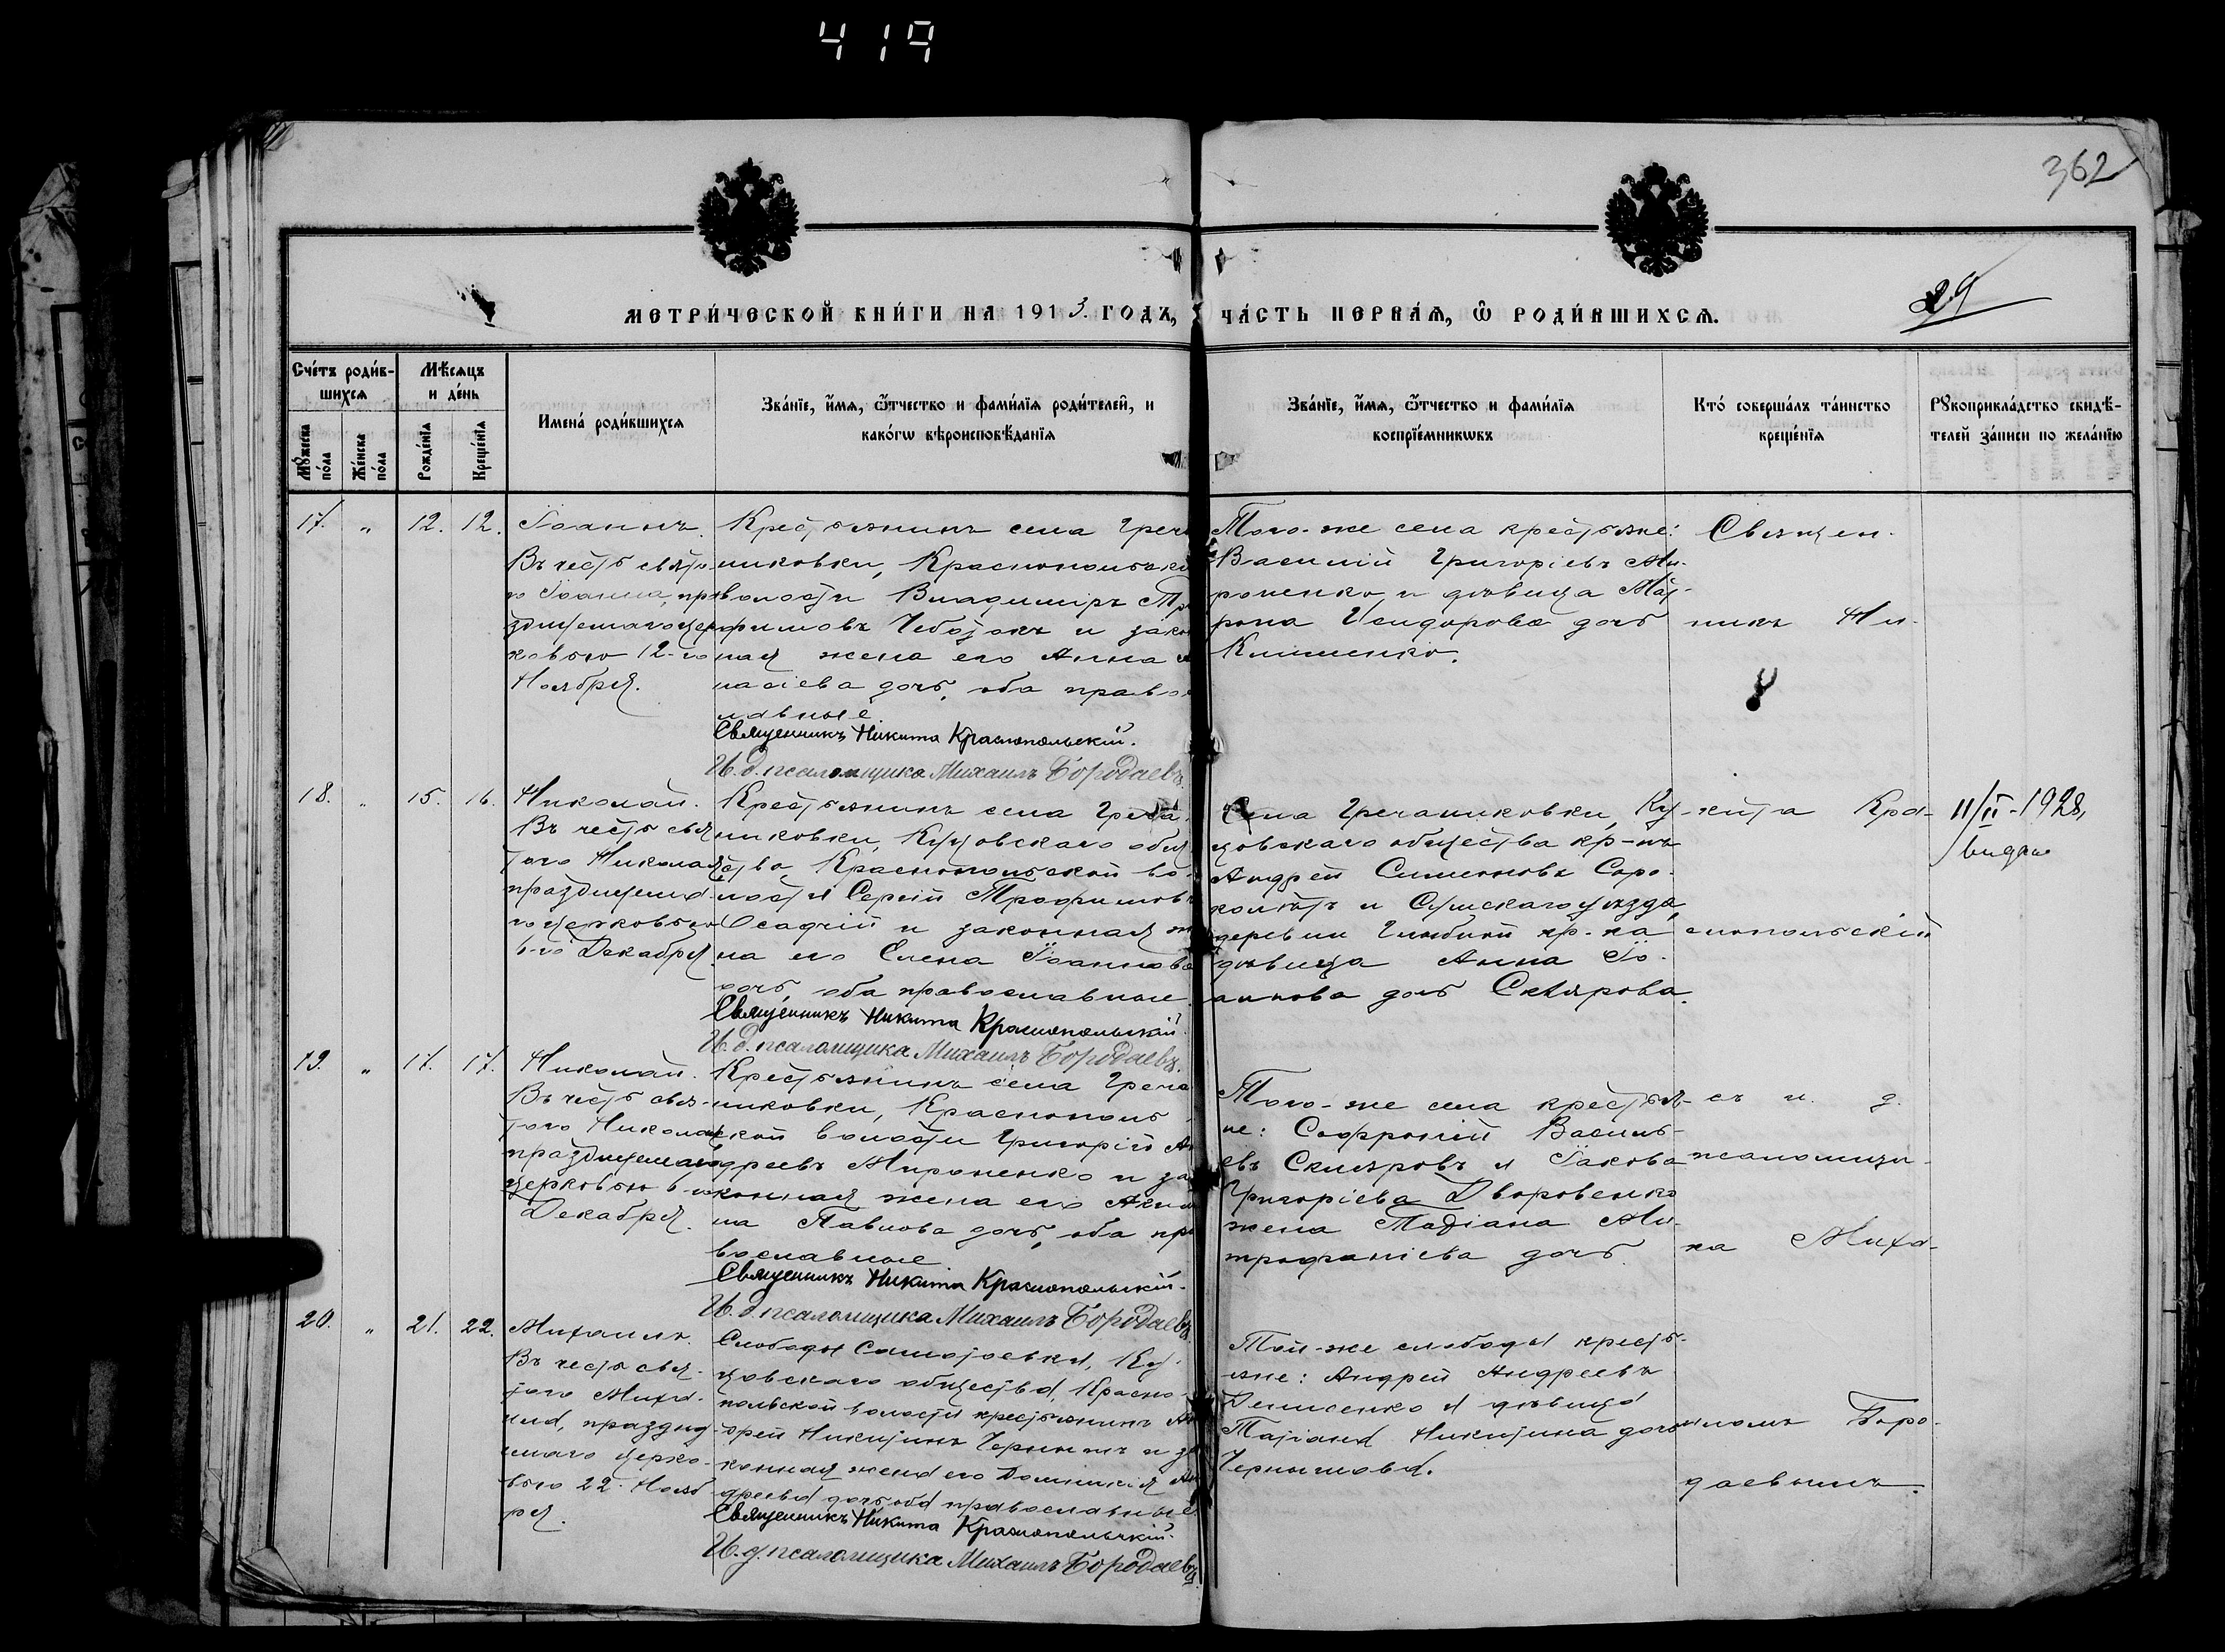 419
362
29
МЕТРИ́ЧЕСКОЙ КНИ́ГИ НА 1913. ГОДЪ, ЧА́СТЬ ПЕРВАЯ, Ѡ РОДИ́ВШИХСЯ.
Счётъ роди́в-
шихся
Му́жеска по́ла
Же́нска по́ла
Мѣ́сяцъ
и де́нь
Рожде́нїя
Креще́нїя
Имена́ роди́вшихся
Зва́нїе, и́мя, ѻ́тчество и фами́лїя роди́телей, и
како́гѡ вѣроисповѣ́данїя
Зва́нїе, и́мя, ѻ́тчество и фами́лїя
воспрїе́мникѡвъ
Кто́ соверша́лъ та́инство
креще́нїя
Рꙋкоприкла́дство свидѣ́-
телей за́писи по жела́нїю
17. " 12. 12.
Іоаннъ.
Въ честь свято-
го Іоанна, пра-
зднуемаго цер-
ковью 12-го
Ноября.
Крестьянинъ села Греча
никовки, Краснопольско
волости Владимиръ Тро
фимовъ Чеботокъ и закон
ная жена его Анна А
насіева дочь, оба правос
лавные.
Священникъ Никита Краснопольскій.
И. д. псаломщика Михаилъ Бородаевъ.
Того-же села крестьяне:
Василій Григоріевъ Ми-
роненко, и дѣвица Мат-
рона Исидорова дочь
Клименко.
18. " 15. 16.
Николай.
Въ честь свя
того Николая
празднуема-
го церковью
6-го Декабря.
Крестьянинъ села Греча
никовки, Куцовскаго общ
ства, Краснопольской во-
лости Сергій Трофимовъ
Осадчій и законная же
на его Елена Іоаннова
дочь, оба православные.
Священникъ Никита Краснопольскій.
И. д. псаломщика Михаилъ Бородаевъ.
Села Гречаниковки, Ку-
цовскаго общества кр-нъ
Андрей Симеоновъ Соро-
колѣтъ и Сумскаго уѣзда,
деревни Глыбной кр-ка
дѣвица Анна Іо-
аннова дочь Склярова.
11/II-1928,
видано
19. " 17. 17.
Николай.
Въ честь свя-
того Николая
празднуемаго
церковью 6-го
Декабря.
Крестьянинъ села Греча
никовки, Краснополь-
ской волости Григорій Ан
дреевъ Мироненко и за
конная жена его Акили
на Павлова дочь, оба пра
вославные.
Священникъ Никита Краснопольскій.
И. д. псаломщика Михаилъ Бородаевъ.
Того-же села крестья-
не: Софроній Василь-
евъ Скляровъ и Іакова
Григоріева Дворовенко
жена Татіана Ми-
трофаніева дочь.
20. " 21. 22.
Михаилъ.
Въ честь свя-
того Миха-
ила, праздну-
емаго церко-
вью 22. Нояб
ря.
Слободы Самотоевки, Ку-
цовскаго общества, Красно-
польской волости крестьянинъ Ан
дрей Никитинъ и за
конная жена его Домникія Ан
дреева дочь оба православные.
Священникъ Никита Краснопольскій.
И. д. псаломщика Михаилъ Бородаевъ.
Той-же слободы кресть-
яне: Андрей Андреевъ
Денисенко и дѣвица
Татіана Никитина дочь
Чернышова.
Священ-
никъ Ни-
кита Кра-
снопольскій
съ и. д.
псаломщи-
ка Миха-
иломъ Боро-
даевымъ.